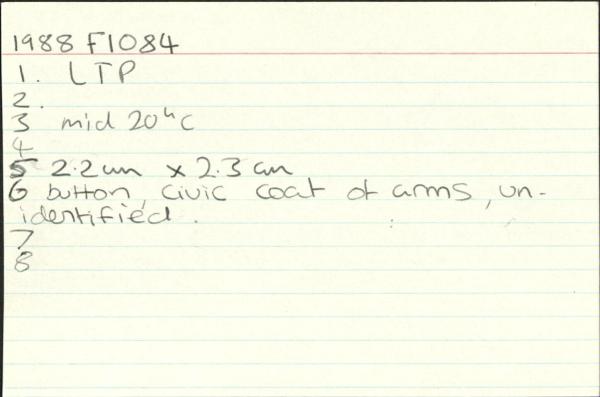 1988 F1084
1. LTP
2.
3 mid 20thC
4
5 2.2cm x 2.3cm
6 button, civic coat of arms, un-
identified.
7
8